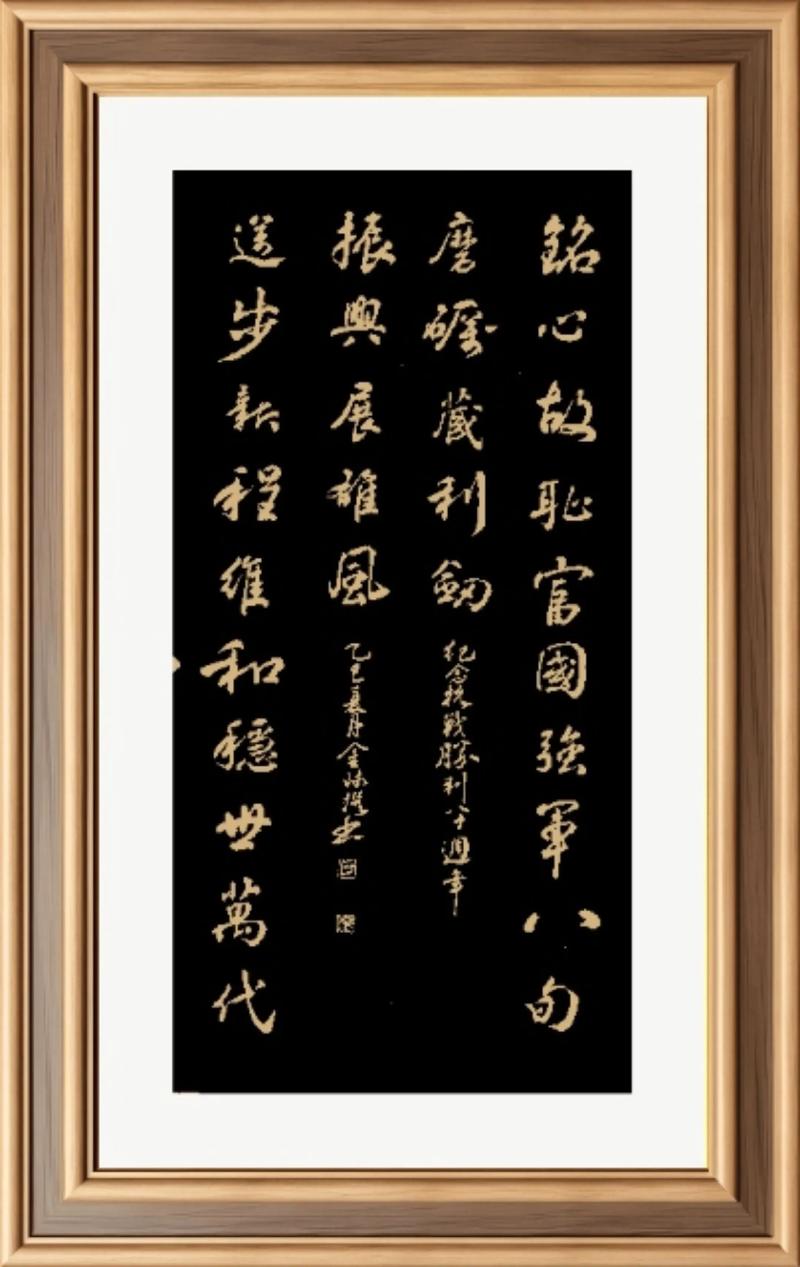 銘心故恥富國強軍八旬
磨礪藏利劍
紀念抗戰勝利八十週年
邁步新程維和穩世萬代
振興展雄風
乙巳夏月金撰书